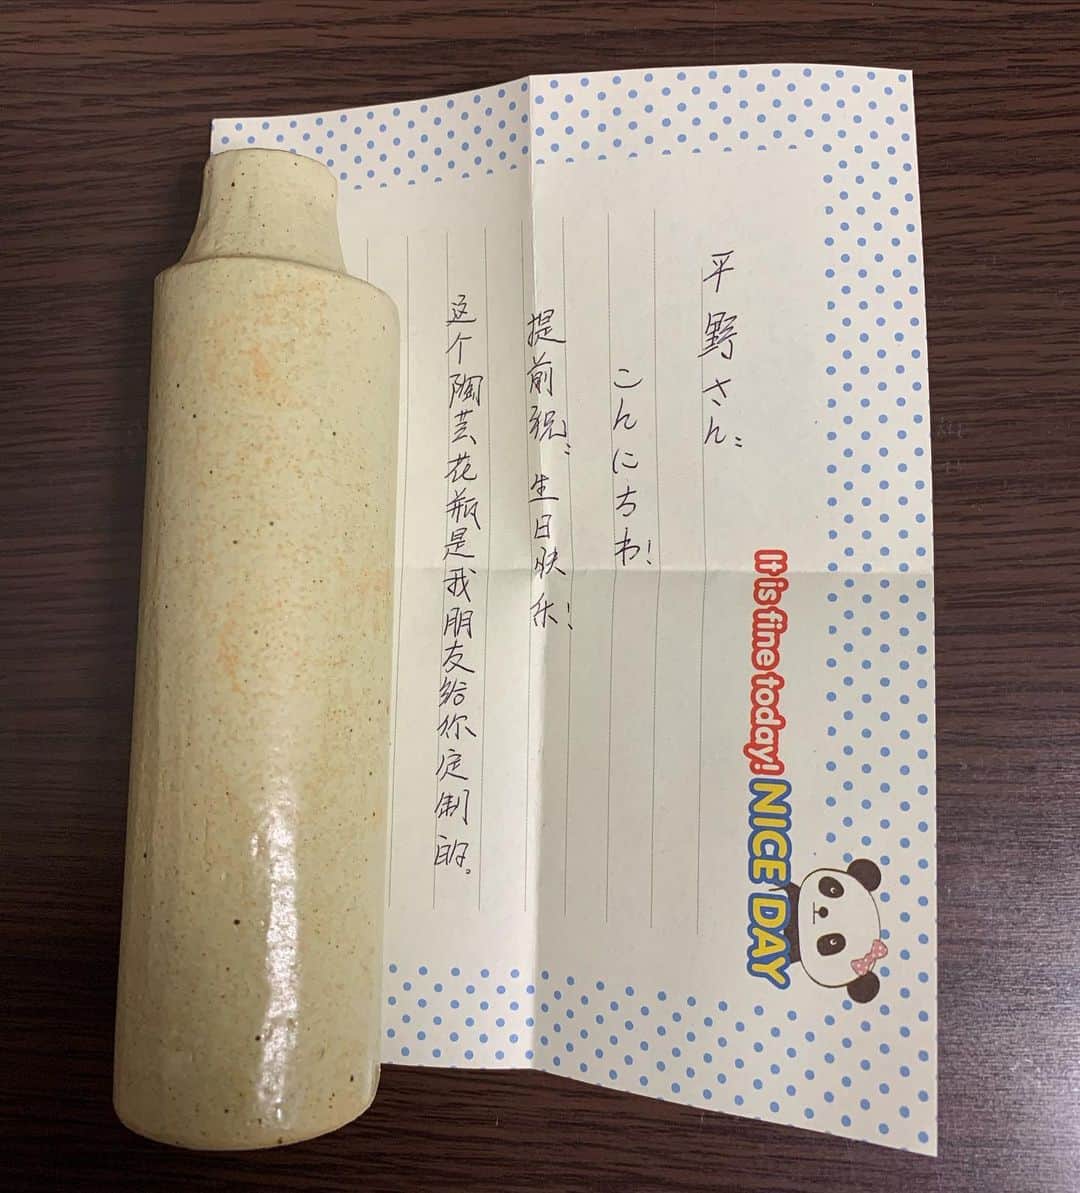 平野さん:
こんにちわ!
提前祝:生日快乐!
这个陶芸花瓶是我朋友给你定制的。
It is fine today! NICE DAY